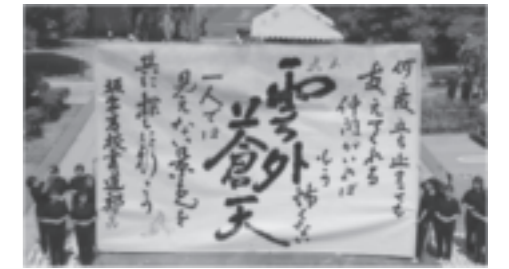 何度立ち止まっても
支えてくれる
仲間がいれば
もう
怖くない
雲外
蒼天
一人では
見えない景色を
共に探しに行こう